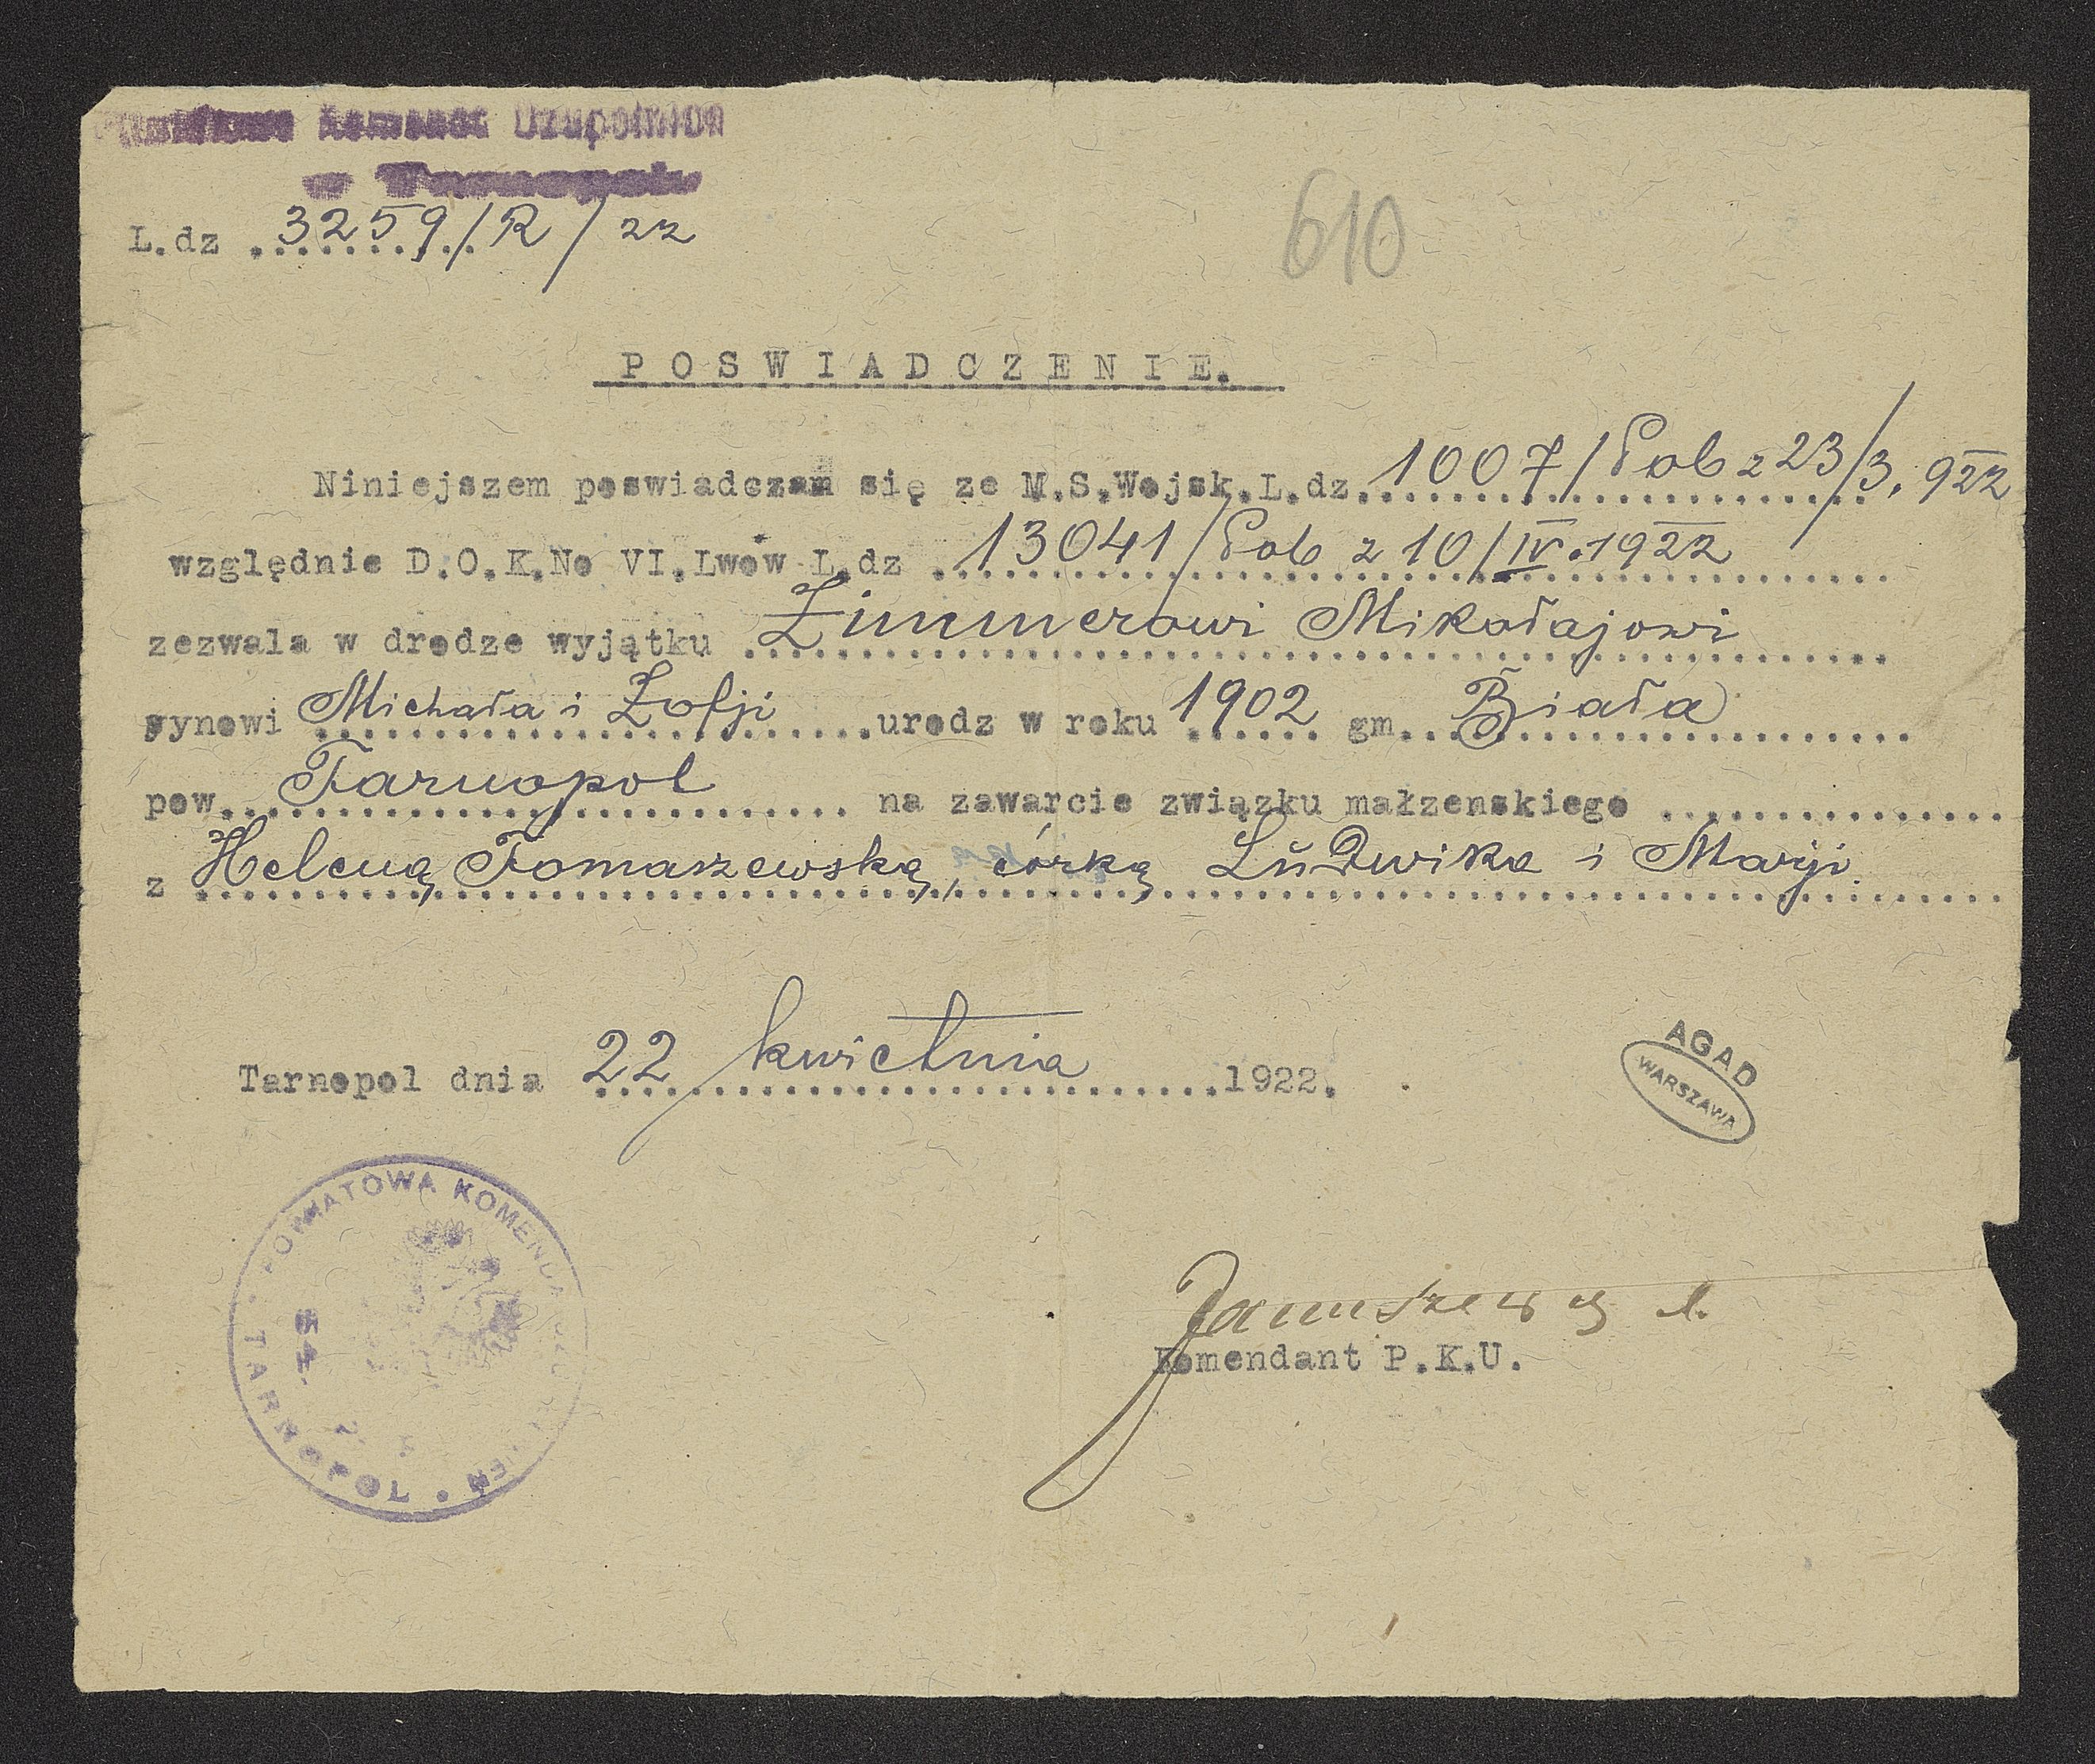 Powiatowa Komenda Uzupełnień
w Tarnopolu
L.dz. 3259/R/22
610
POSWIADCZENIE.
Niniejszem poswiadczam się ze M.S.Wojsk.L.dz. 1007/Pob z 23/3. 922
względnie D.O.K.No VI.Lwów L.dz 13041/Pob z 10/IV.1922
zezwala w drodze wyjątku Zimmerowi Mikołajowi
synowi Michała i Zofji urodz w roku 1902 gm. Biała
pow. Tarnopol na zawarcie związku małzenskiego
z Heleną Tomaszewską, córką Ludwika i Marji.
Tarnopol dnia 22 kwietnia 1922.
AGAD
WARSZAWA
POWIATOWA KOMENDA UZUPEŁNIEŃ • TARNOPOL •
54.
Komendant P.K.U.